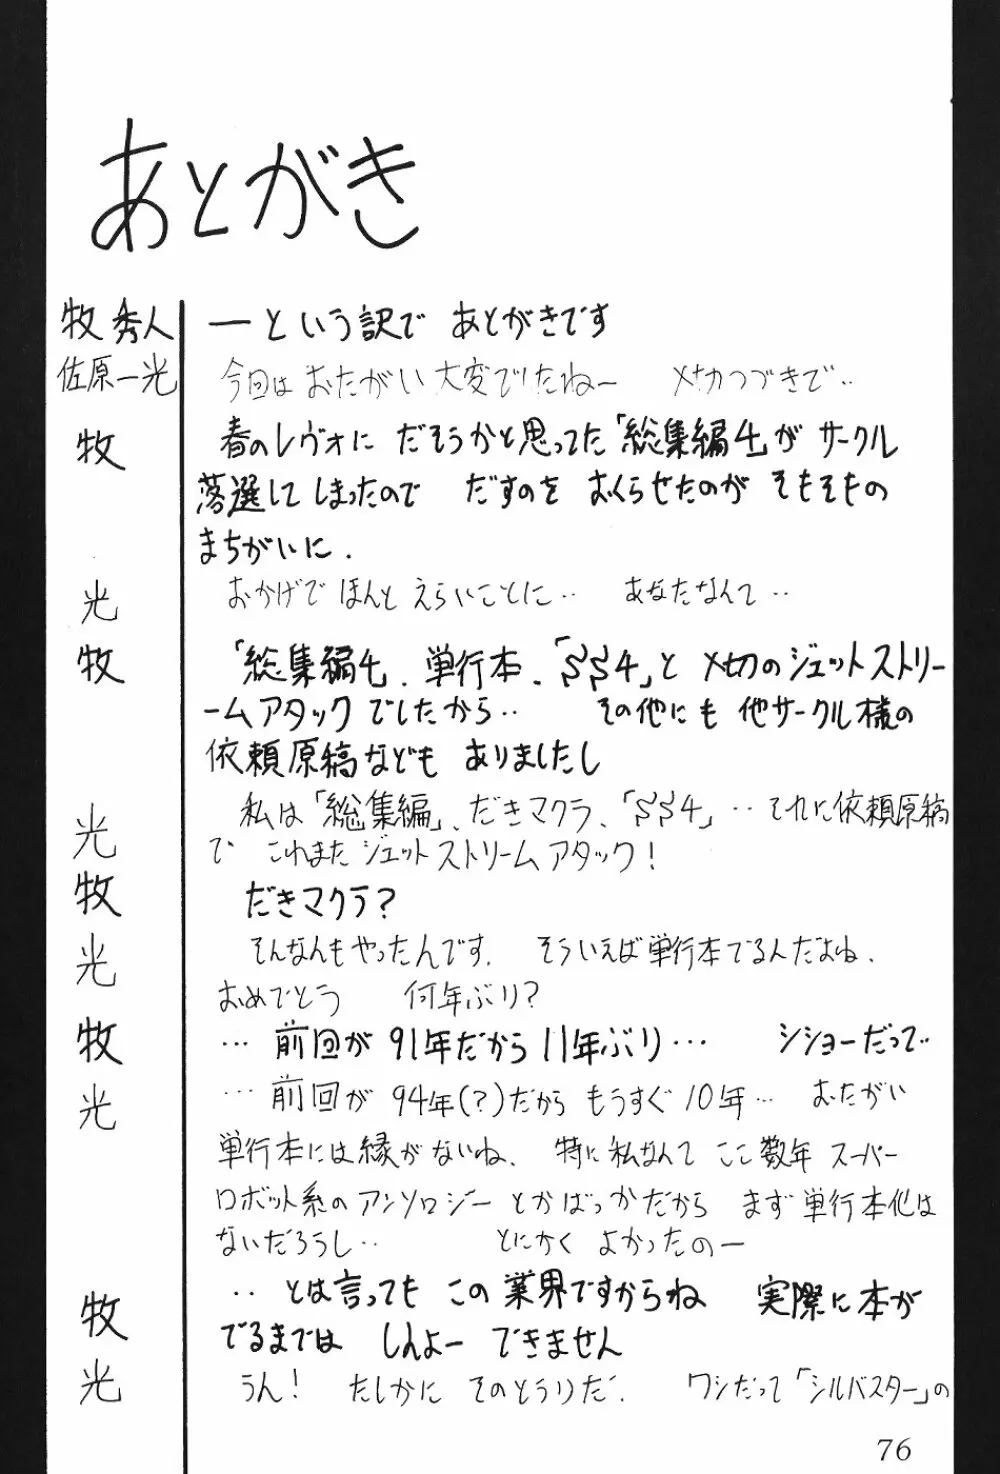 あとがき
牧秀人 ―という訳で あとがきです
佐原一光 今回は おたがい 大変でしたねー 〆切つづきで‥
牧 春のレヴォに だそうかと思ってた「総集編4」が サークル
落選して しまったので だすのを おくらせたのが そもそもの
まちがいに.
光 おかげで ほんと えらいことに‥ あなたなんて‥
牧 「総集編4」、単行本、「SS4」と 〆切のジェットストリー
ームアタック でしたから‥ その他にも 他サークル様の
依頼原稿なども ありましたし
光 私は「総集編」、だきマクラ、「SS4」‥それに依頼原稿
で これまた ジェット ストリームアタック!
牧 だきマクラ?
光 そんなんもやったんです. そういえば単行本でるんだよね.
おめでとう 何年ぶり?
牧 … 前回が 91年だから 11年ぶり… シショーだって
光 … 前回が 94年(?)だから もうすぐ 10年… おたがい
単行本には縁がないね. 特に私なんて ここ数年 スーパー
ロボット系のアンソロジー とかばっかだから まず単行本化は
ないだろうし‥ とにかく よかったのー
牧 ‥ とは言っても この業界ですからね 実際に本が
でるまでは しんよー できません
光 うん! たしかに そのとうりだ. ワシだって「シルバスター」の
76